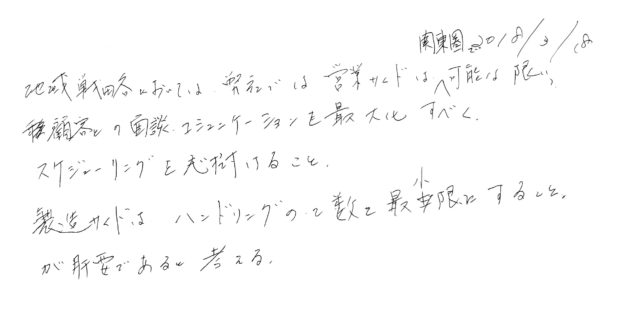 関東圏 2018/3/18
地域戦略においては 弊社では 営業サイドは 可能な限り
顧客との面談 コミュニケーションを最大化すべく
スケジューリングを心掛けること.
製造サイドは ハンドリングの 数を最小限にすること.
が肝要であると考える.